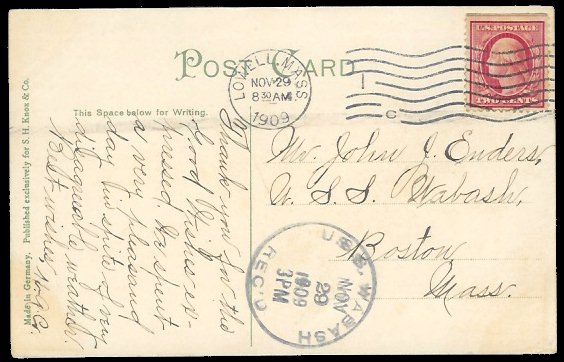 POST CARD
LOWELL, MASS
NOV 29
8 30 AM
1909
C
U.S. POSTAGE
TWO CENTS
This Space below for Writing.
Thank you for the
good wishes ex-
pressed. Has spent
a very pleasand
day in spite of very
disagreeable weather.
Best wishes
Mr. John J. Enders,
U. S. S. Wabash,
Boston
Mass.
U.S.S. WABASH
NOV
29
1909
3PM
REC'D
Made in Germany. Published exclusively for S. H. Knox & Co.